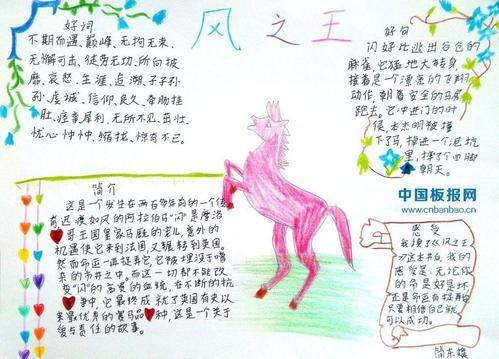 风之王
好词
不期而遇、巅峰、无拘无束、
无懈可击、徒劳无功、所向披
靡、哀怨、生涯、追溯、子子孙
孙、虔诚、信仰、良久、脊肠挂
肚、症毒犀利、无所不见、茁壮、
忧心忡忡、蜷拢、惊奇不已。
好句
闪好比逃出谷仓的
麻雀,它猛地大转身,
接着是个漂亮的言翔
动作,朝着安全的马房
跑去。它冲进门的时
候,
被撞
下了马,掉进一个泥坑
里,摔了个四脚
朝天。
中国板报网
www.cnbanbao.cn
简介
这是一个发生在两百年前的一个传
奇迟疾如风的阿拉伯马"闪"是摩洛
哥王国皇家马厩的宠儿,意外的
机遇使它来到法国,又辗转到英国。
然而命运一再捉弄它,它被埋没于嘈
杂的市井之中。而这一切都不能改
变"闪"的高贵的血统,在不断的抗
争中,它最终成就了英国有史以
来最优秀的赛马品种,这是一个关于
爱与责任的故事。
感受
我读了《风之王
》这本书后,我的
感受是:无论你
的命是好是坏,
还是命运在捉弄你
只要相信自己就
可以成功。
简东媛